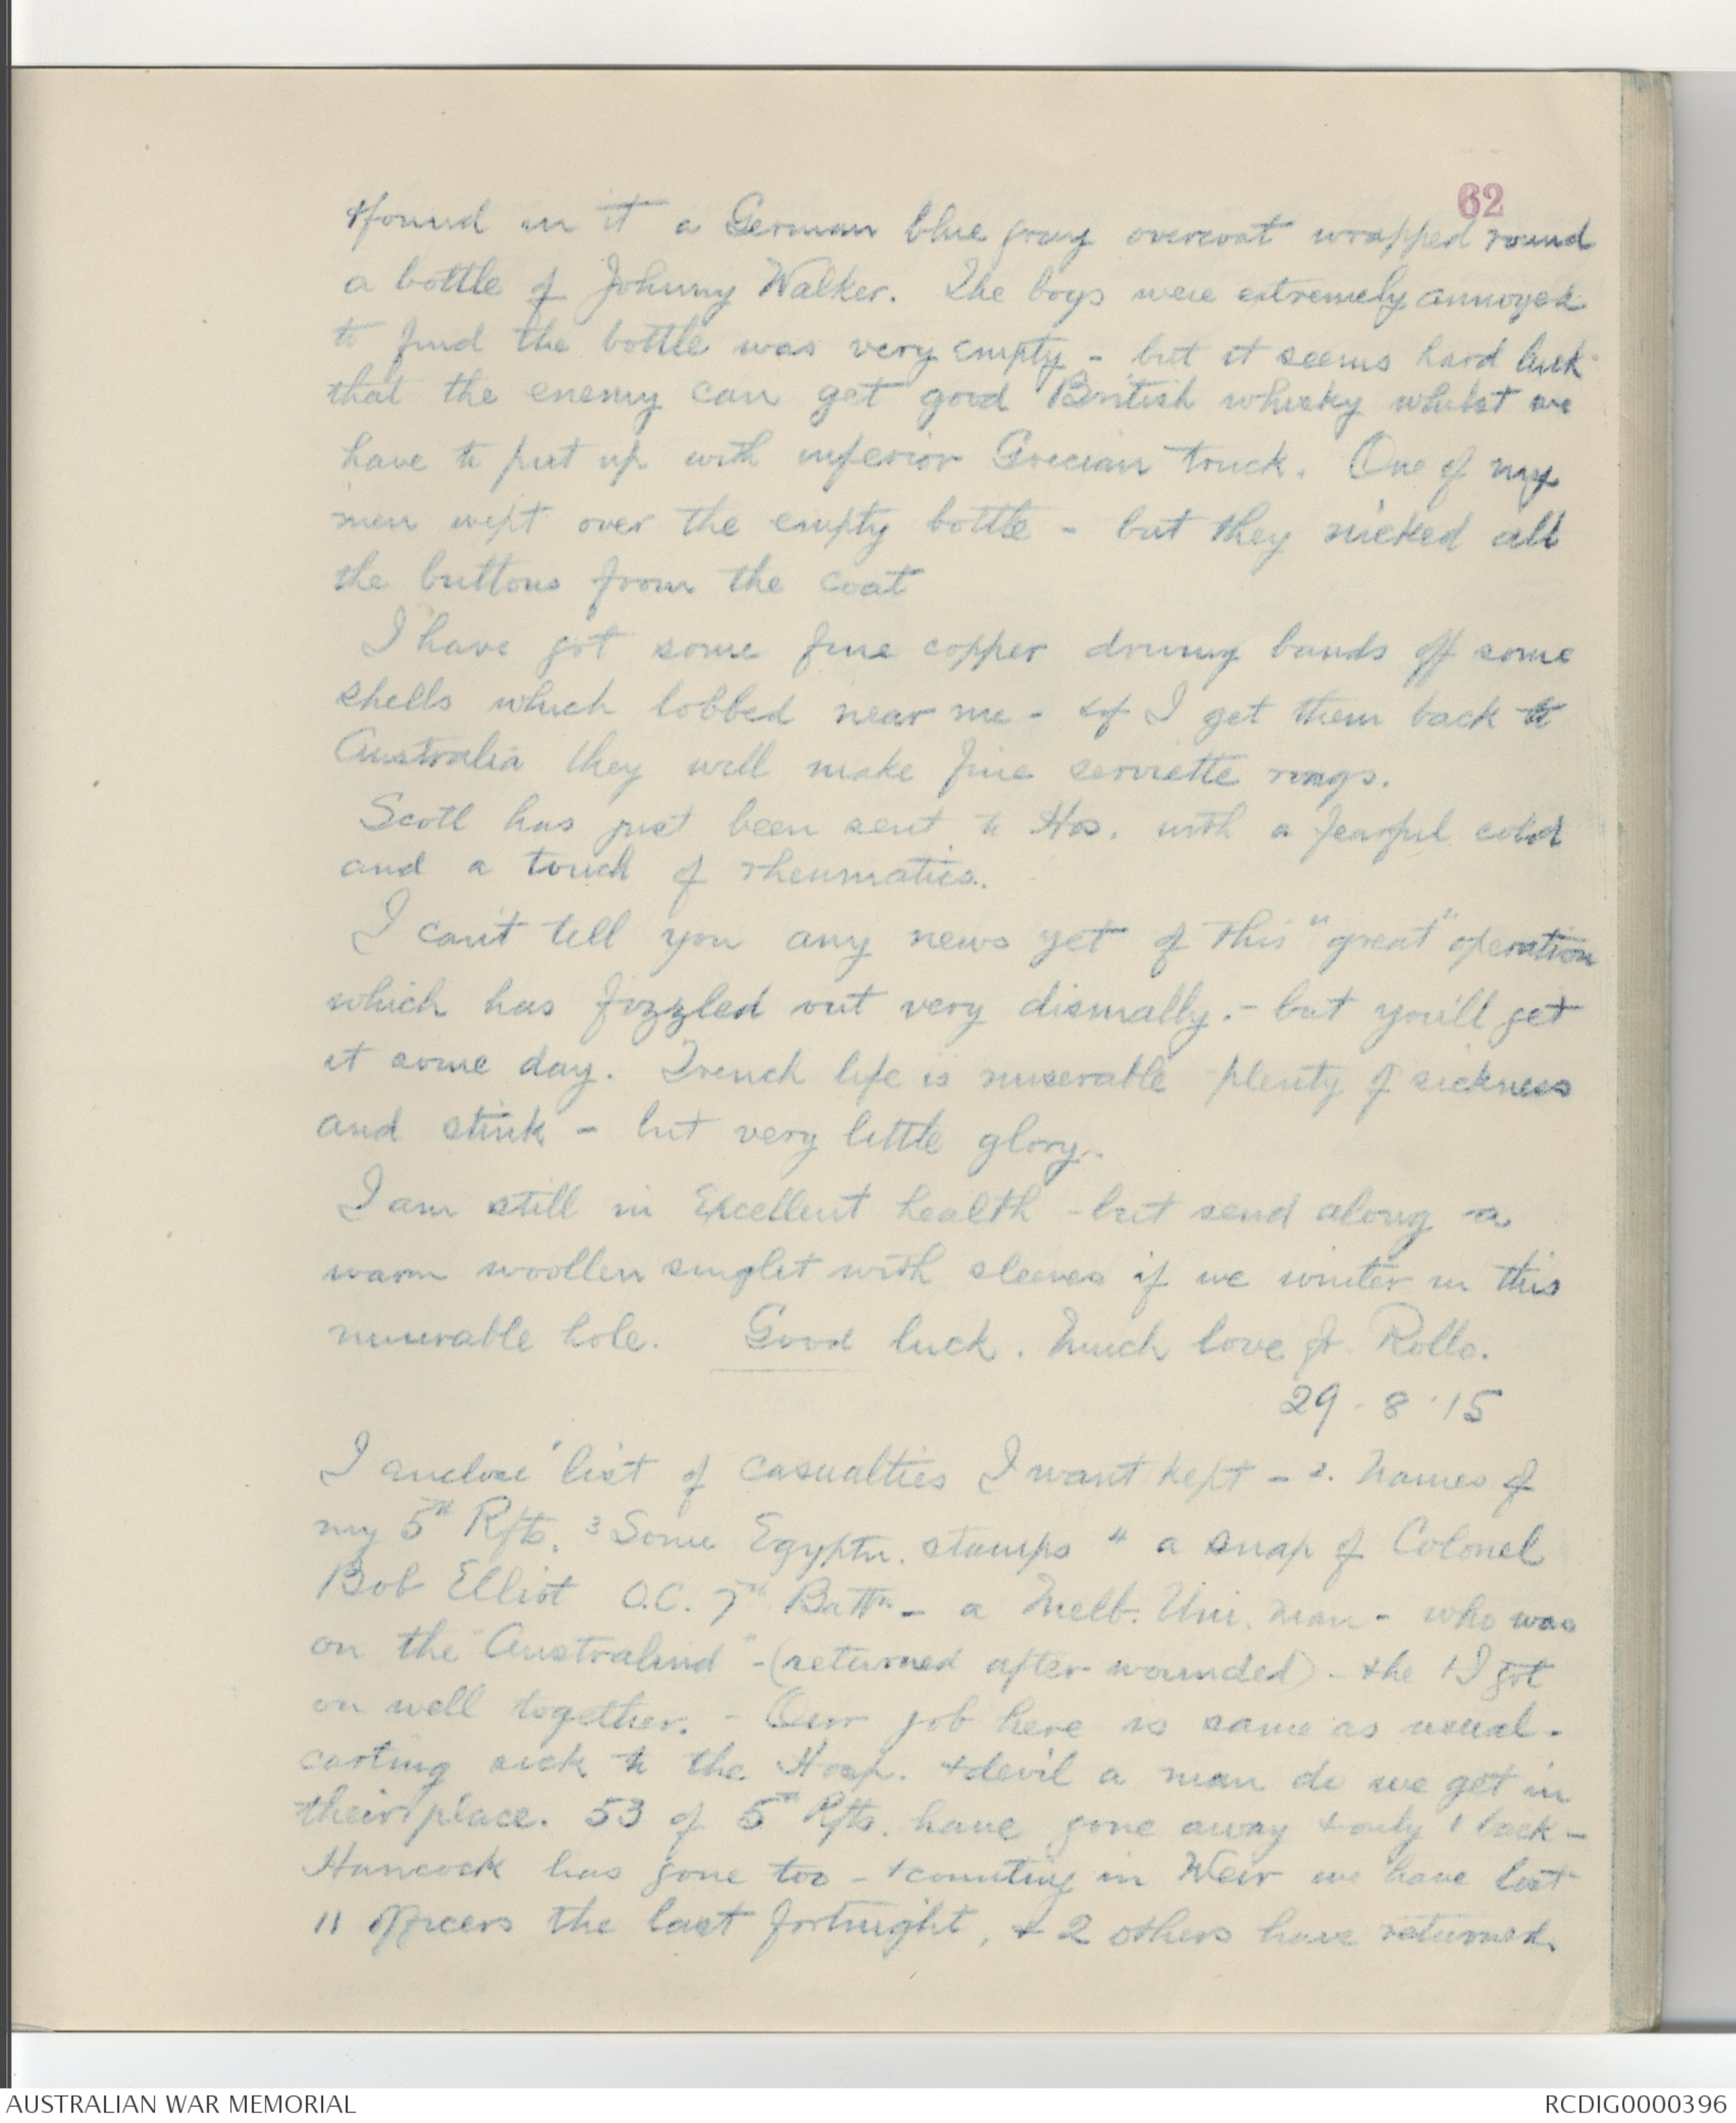 62
& found in it a German blue gray overcoat wrapped round
a bottle of Johnny Walker. The boys were extremely annoyed
to find the bottle was very empty - but it seems hard luck
that the enemy can get good British whisky whilst we
have to put up with inferior Grecian truck. One of my
men wept over the empty bottle - but they nicked all
the buttons from the coat
I have got some fine copper driving bands off some
shells which lobbed near me - & if I get them back to
Australia they will make fine serviette rings.
Scott has just been sent to Hos. with a fearful cold
and a touch of rheumatics.
I can't tell you any news yet of this "great" operation
which has fizzled out very dismally. - but you'll get
it some day. Trench life is miserable plenty of sickness
and stink - but very little glory.
I am still in Excellent health - but send along a
warm woollen singlet with sleeves if we winter in this
miserable hole. Good luck. Much love fr Rollo.
29.8.15
I enclose ' list of casualties I want kept - 2. Names of
my 5th Rfts. 3 Some Egyptn. stamps 4 a snap of Colonel
Bob Elliot O.C. 7th Battn - a Melb. Uni. man - who was
on the "Australind" - (returned after wounded) - & he & I got
on well together. - Our job here is same as usual -
carting sick to the Hosp. & devil a man do we get in
their place. 53 of 5th Rfts. have gone away & only 1 back -
Hancock has gone too - & counting in Weir we have lost
11 officers the last fortnight, & 2 others have returned.
AUSTRALIAN WAR MEMORIAL
RCDIG0000396